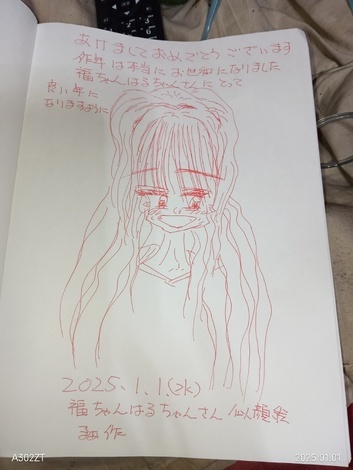 あけましておめでとうございます
昨年は本当にお世話になりました
福ちゃんはるちゃんさんにとって
良い年に
なりますように
2025.1.1.(水)
福ちゃんはるちゃんさん似顔絵
作
A302ZT
2025/01/01